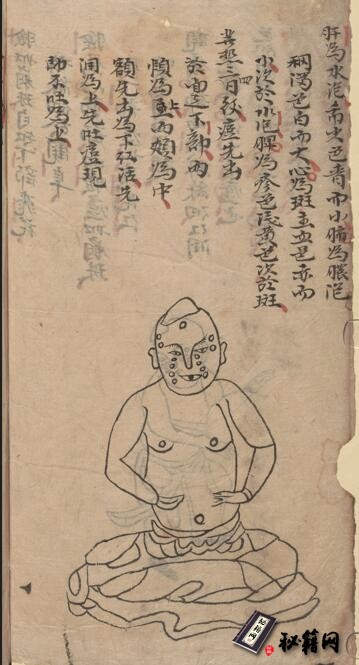 肝為水泡希水色青而小肺為膿泡
稠濁色白而大心為斑主血色赤而
小次於水泡脾為疹色淺黃色次於斑
三四日 瘡先出
於面 下部而
順為 上而頰為中
額先出為下紅活先
潤為上先旺 現
即不旺為上
秘籍网